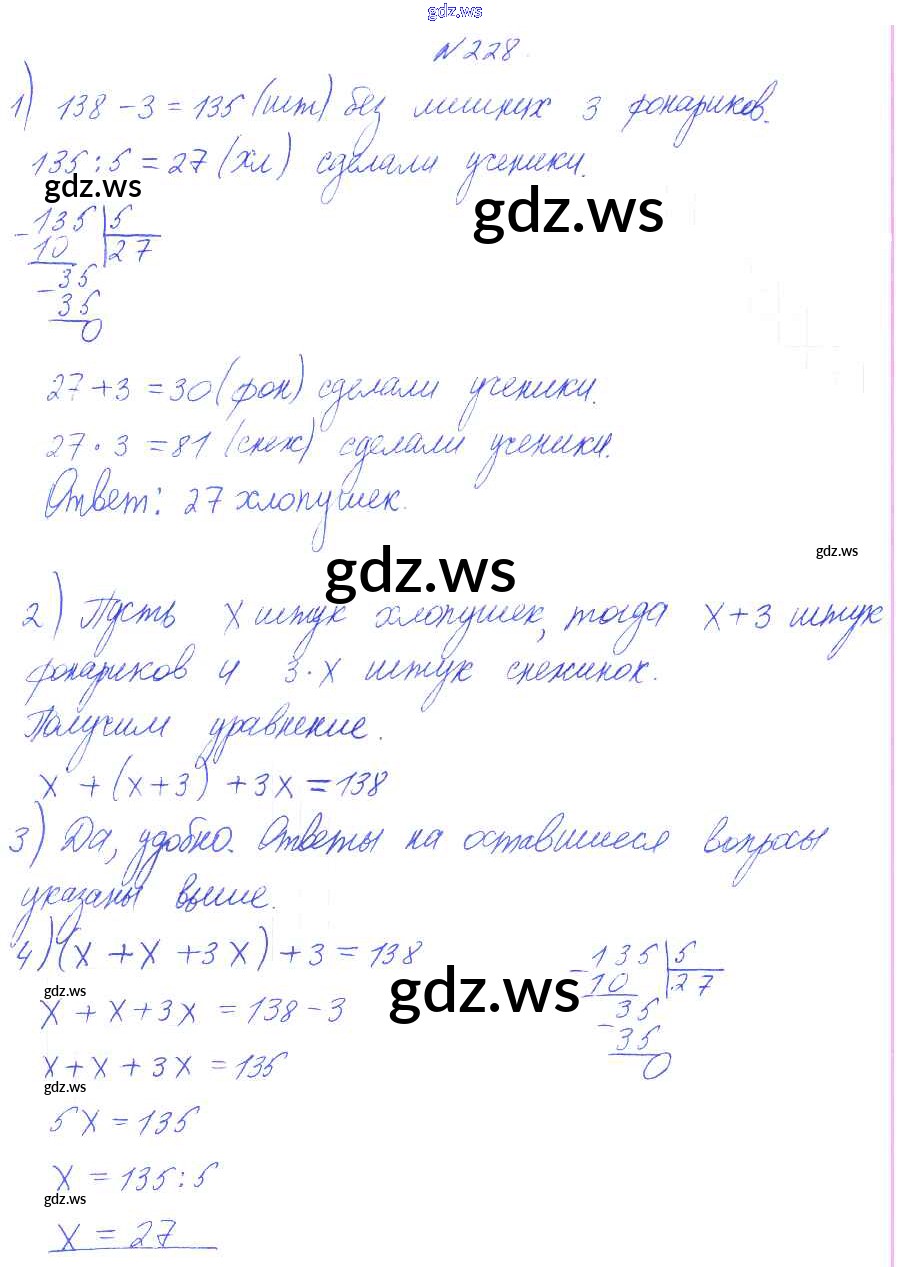 gdz.ws
№228.
1) 138 - 3 = 135 (шт) без лишних 3 фонариков.
135 : 5 = 27 (хл) сделали ученики.
gdz.ws
gdz.ws
- 135 | 5
10 | 27
- 35
35
0
27 + 3 = 30 (фон) сделали ученики.
27 · 3 = 81 (снеж) сделали ученики.
Ответ: 27 хлопушек.
gdz.ws
gdz.ws
2) Пусть х штук хлопушек, тогда х + 3 штук
фонариков и 3 · х штук снежинок.
Получим уравнение.
х + (х + 3) + 3х = 138
3) Да, удобно. Ответы на оставшиеся вопросы
указаны выше.
4) (х + х + 3х) + 3 = 138
gdz.ws
gdz.ws
х + х + 3х = 138 - 3
х + х + 3х = 135
gdz.ws
5х = 135
х = 135 : 5
gdz.ws
х = 27
- 135 | 5
10 | 27
- 35
35
0